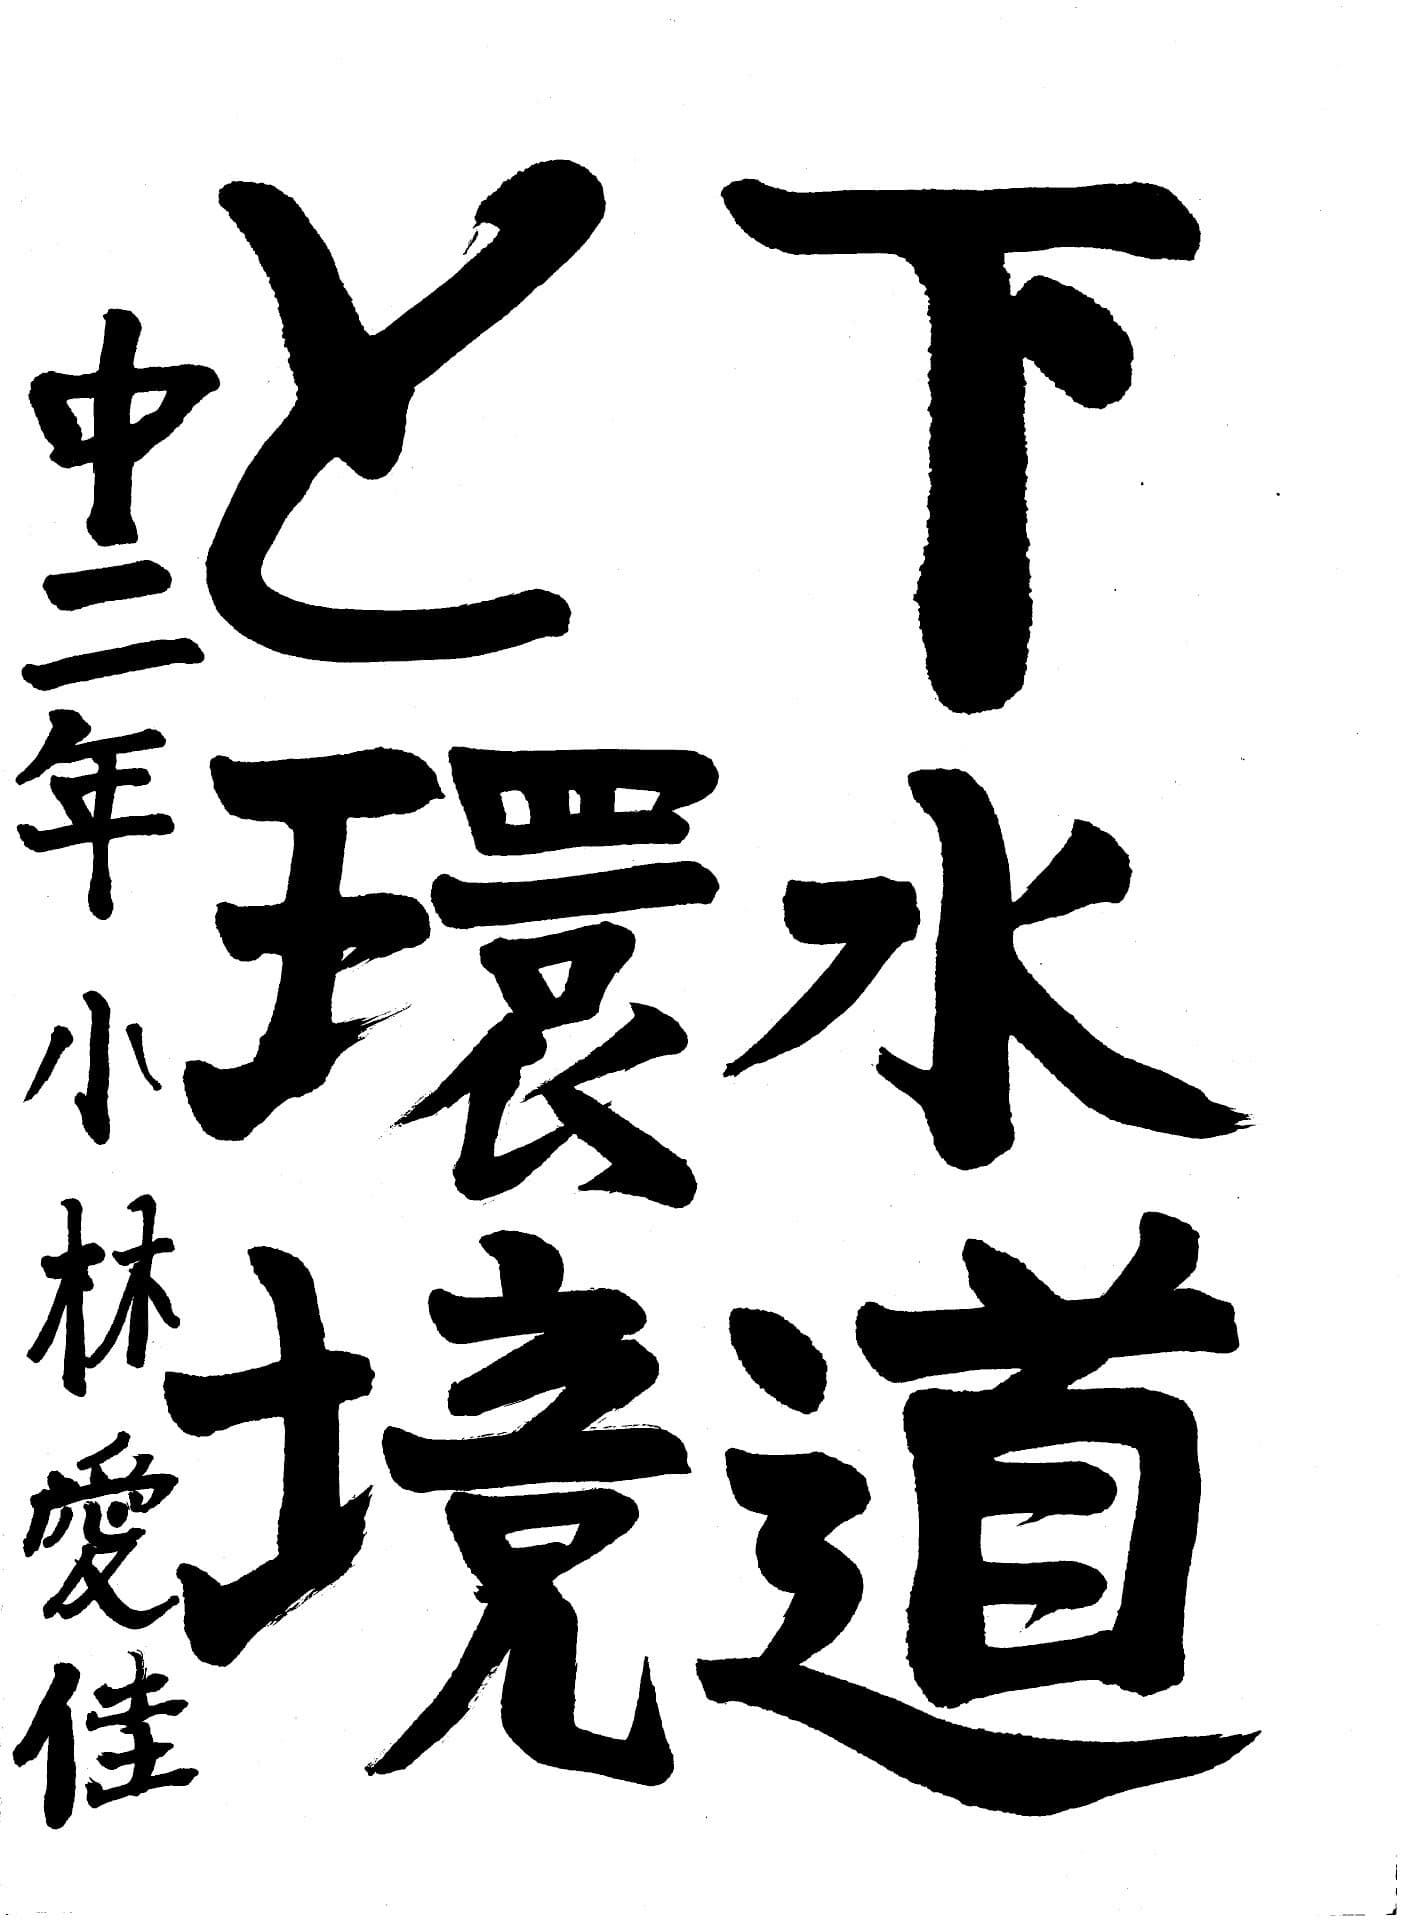 下水道
と環境
中二年 小林愛佳